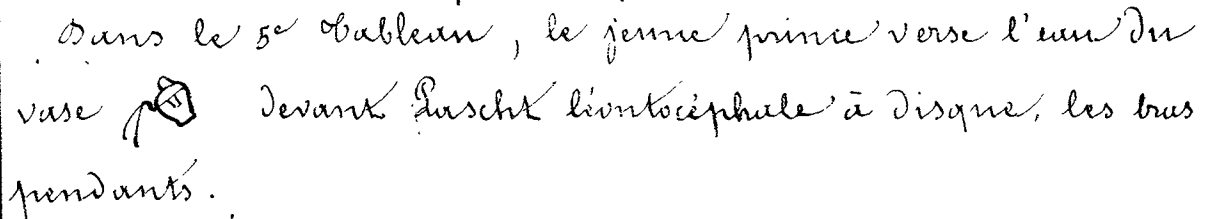 Dans le 5e Tableau, le jeune prince verse l'eau du
vase devant Pascht léontocéphale à disque, les bras
pendants.